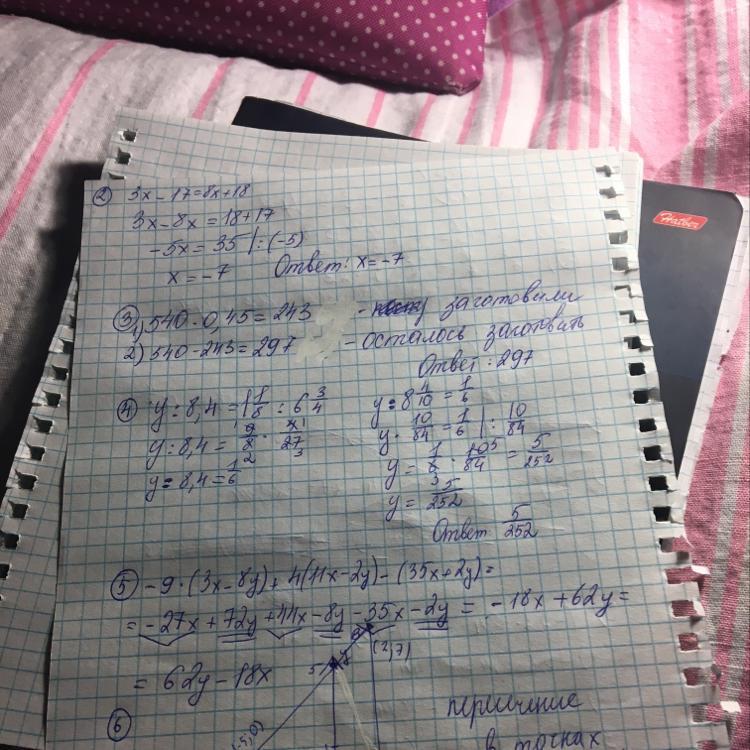 ② 3x - 17 = 8x + 18
3x - 8x = 18 + 17
-5x = 35 | : (-5)
x = -7 Ответ: x = -7
③ 1) 540 · 0,45 = 243 - заготовили
2) 540 - 243 = 297 - осталось заготовить
Ответ: 297
④ y : 8,4 = 1 1/8 : 6 3/4
y : 8,4 = 9/8 · 4/27
y : 8,4 = 1/6
y : 8 4/10 = 1/6
y · 10/84 = 1/6 | : 10/84
y = 1/6 · 10/84 = 5/252
y = 5/252
Ответ 5/252
⑤ -9 · (3x - 8y) + 4(11x - 2y) - (35x + 2y) =
= -27x + 72y + 44x - 8y - 35x - 2y = -18x + 62y =
= 62y - 18x
⑥
5
y
(2,7)
в точках
Hatber